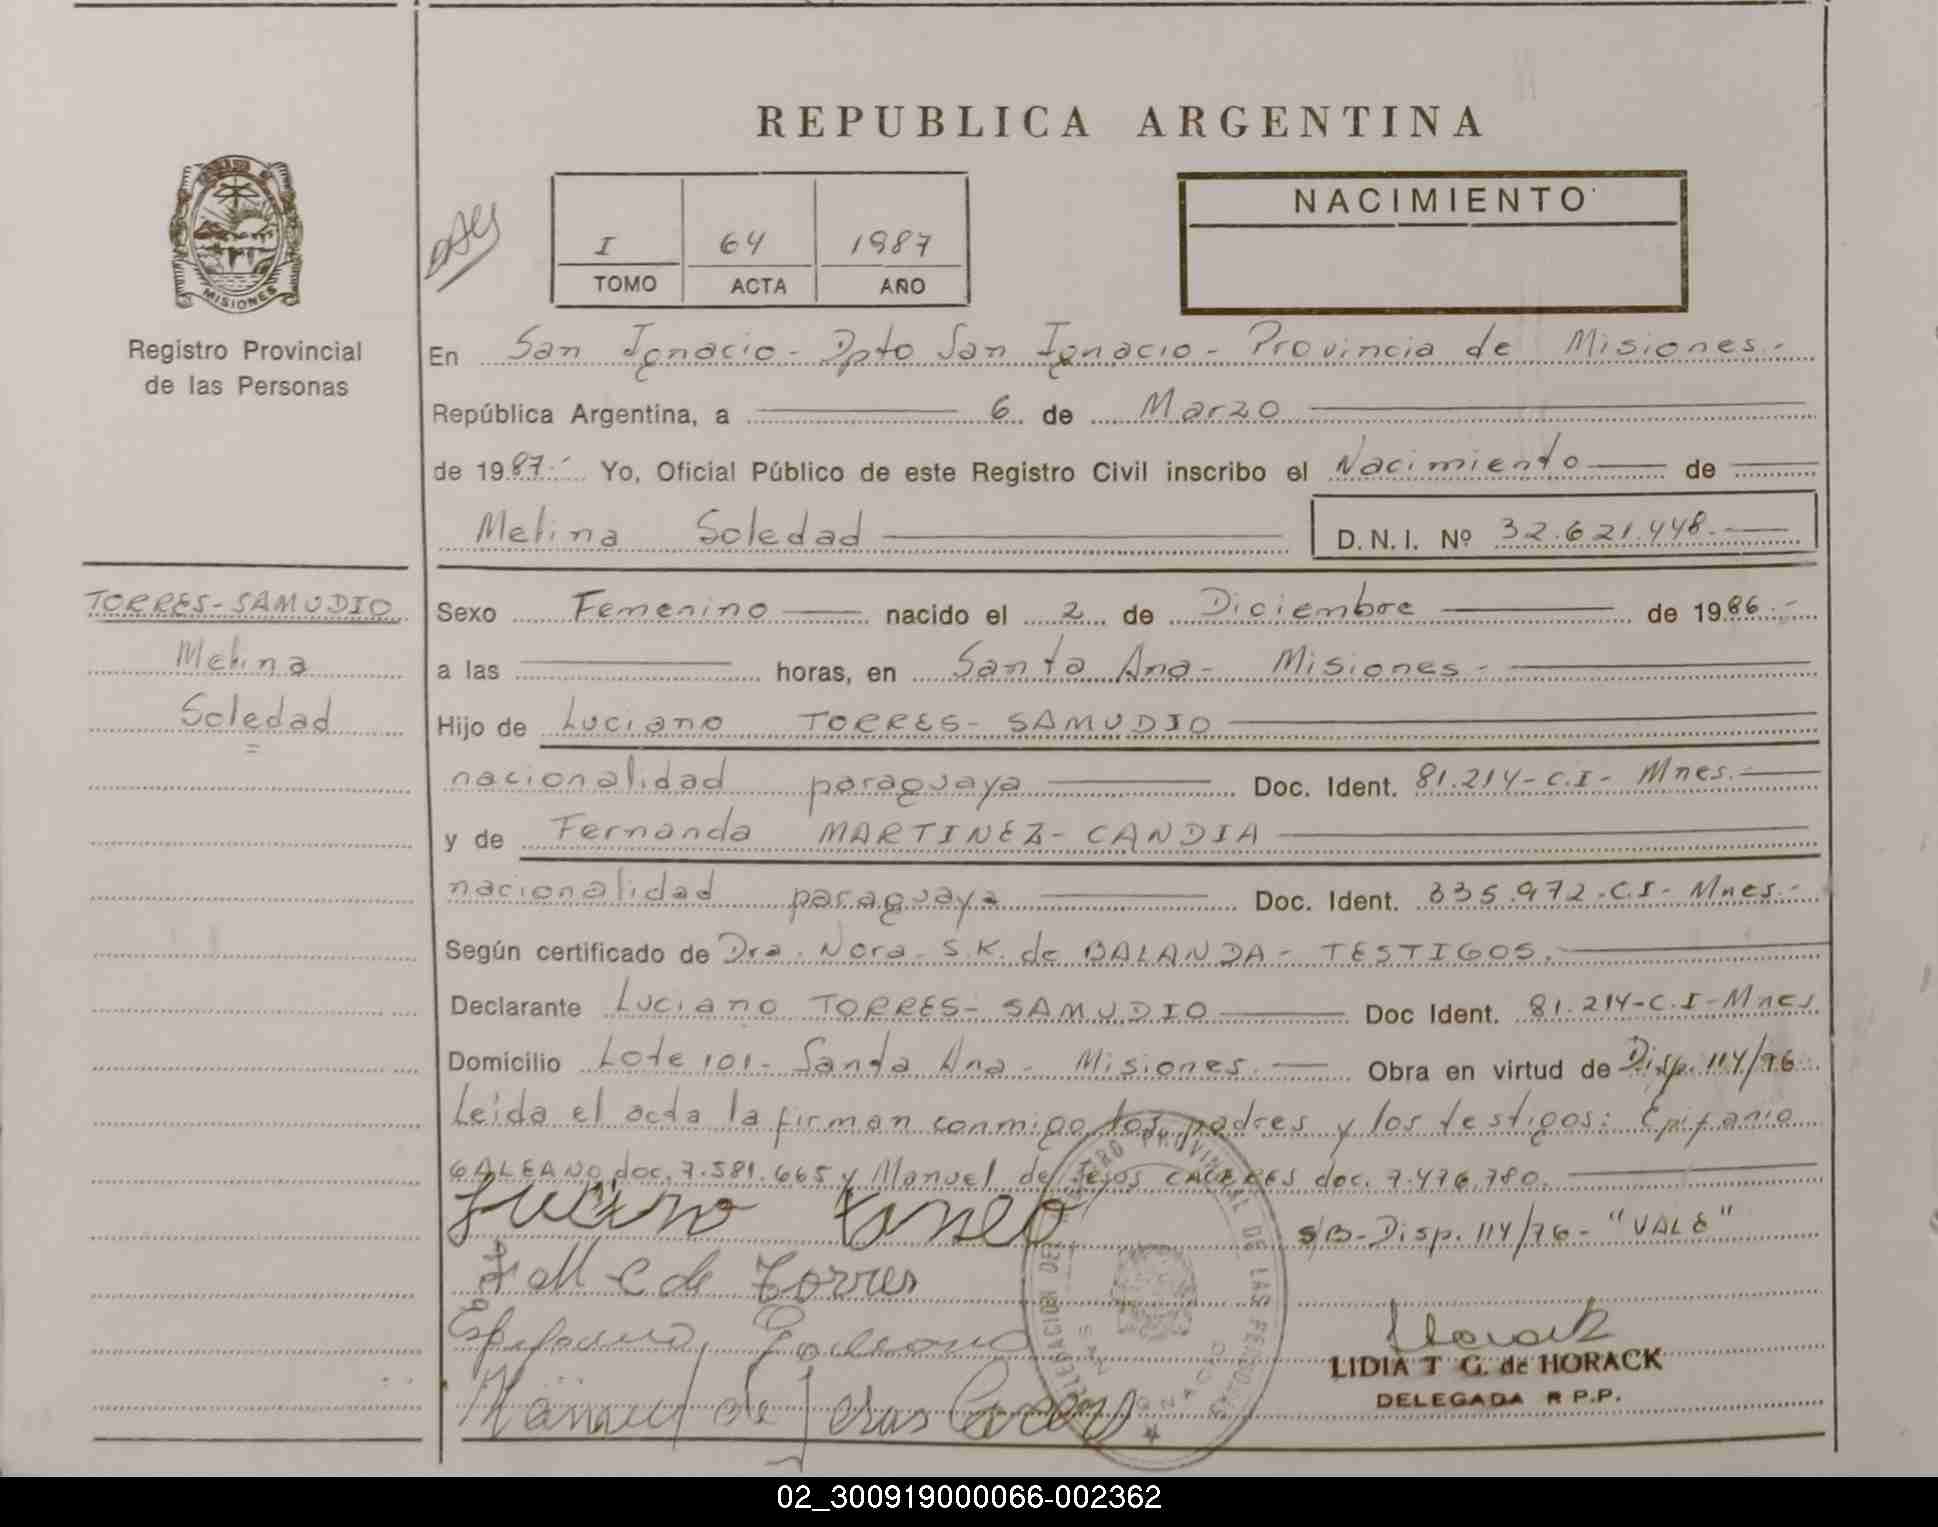 REPUBLICA ARGENTINA
MISIONES
Registro Provincial
de las Personas
I 64 1987
TOMO ACTA AÑO
NACIMIENTO
En San Ignacio - Dpto San Ignacio - Provincia de Misiones.-
República Argentina, a 6 de Marzo
de 1987.- Yo, Oficial Público de este Registro Civil inscribo el Nacimiento de
Melina Soledad
D.N.I. Nº 32.621.448.
TORRES-SAMUDIO
Melina
Soledad
=
Sexo Femenino nacido el 2 de Diciembre de 1986.-
a las horas, en Santa Ana- Misiones.-
Hijo de Luciano TORRES-SAMUDIO
nacionalidad paraguaya Doc. Ident. 81.214-C.I- Mnes.-
y de Fernanda MARTINEZ-CANDIA
nacionalidad paraguaya Doc. Ident. 335.972-C.I- Mnes.-
Según certificado de Dra. Nora S.K. de BALANDA- TESTIGOS.
Declarante Luciano TORRES-SAMUDIO Doc Ident. 81.214-C.I-Mnes
Domicilio Lote 101- Santa Ana- Misiones.- Obra en virtud de Disp. 114/76
Leída el acta la firman conmigo los padres y los testigos: Epifanio
GALEANO doc. 7.581.665 y Manuel de Jesos CACERES doc. 7.476.780.
S/B-Disp. 114/76- "VALE"
F M C de Torres
Manuel de Jesus
DELEGACION DEL REGISTRO PROVINCIAL DE LAS PERSONAS
SAN IGNACIO
Horack
LIDIA T G. de HORACK
DELEGADA R P.P.
02_300919000066-002362